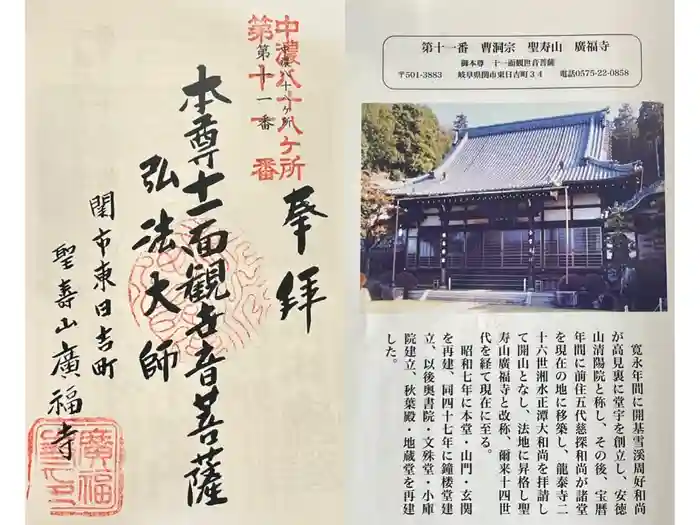 中濃八十八ヶ所
第十一番
中濃八十八ヶ所
第十一番
奉拝
本尊十一面観世音菩薩
弘法大師
関市東日吉町
聖壽山廣福寺
廣福
第十一番 曹洞宗 聖寿山 廣福寺
御本尊 十一面観世音菩薩
〒501-3883 岐阜県関市東日吉町３４ 電話0575-22-0858
寛永年間に開基雪溪周好和尚
が高見裏に堂宇を創立し、安徳
山清陽院と称し、その後、宝暦
年間に前住五代慈探和尚が諸堂
を現在の地に移築し、龍泰寺二
十六世湘水正潭大和尚を拝請し
て開山となし、法地に昇格し聖
寿山廣福寺と改称、爾来十四世
代を経て現在に至る。
昭和七年に本堂・山門・玄関
を再建、同四十七年に鐘楼堂建
立、以後奥書院・文殊堂・小庫
院建立、秋葉殿・地蔵堂を再建
した。